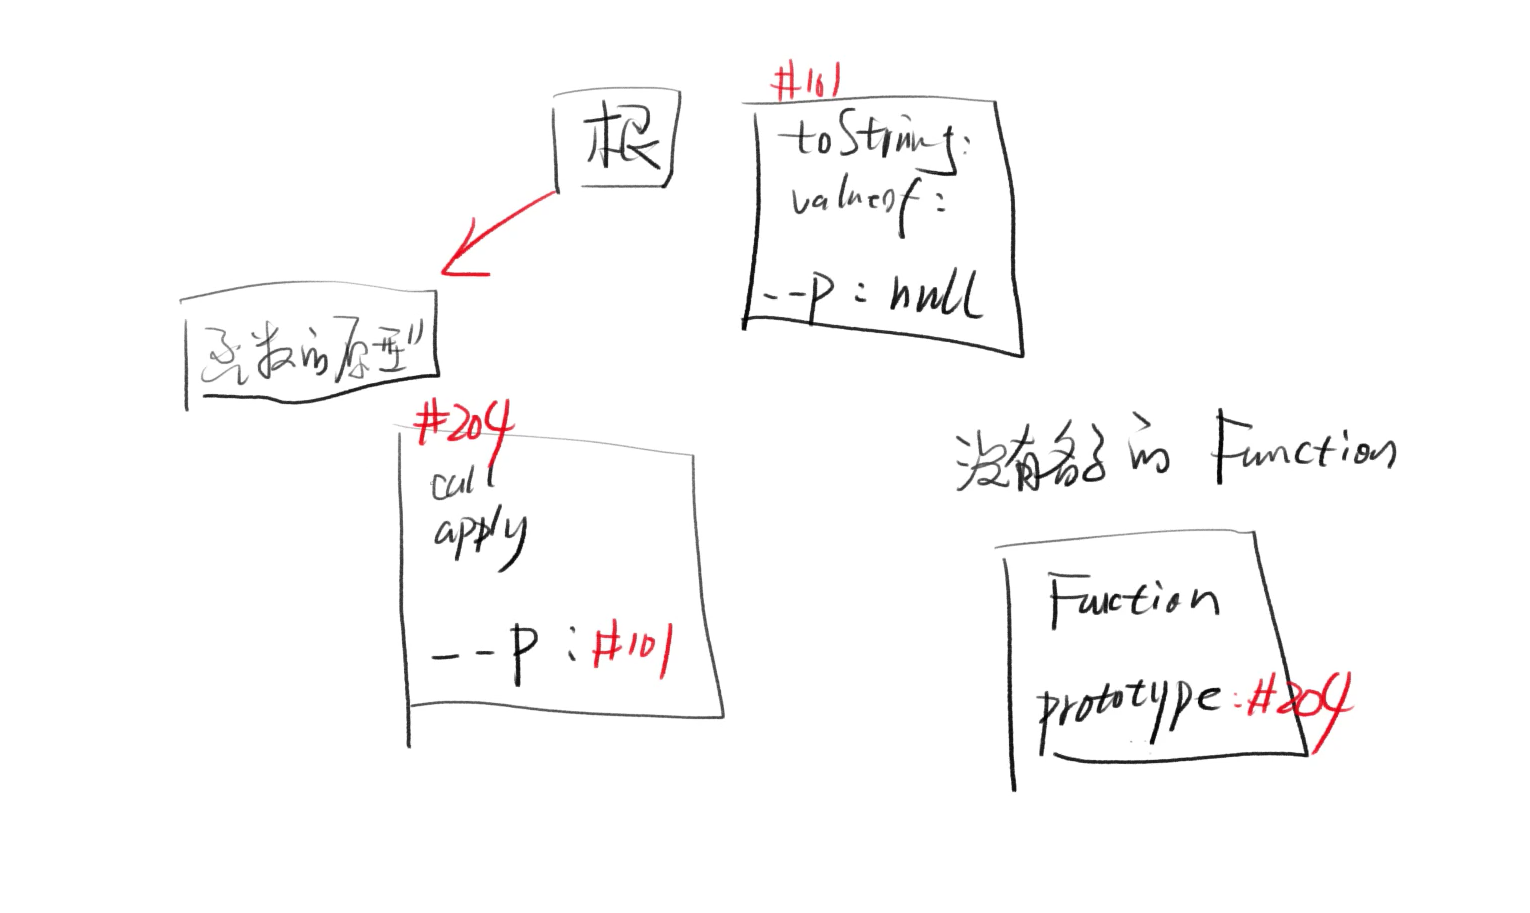 #101
根
toString:
valueof:
--p : null
函数的原型"
#204
call
apply
--p : #101
没有名字的 Function
Function
prototype:#204